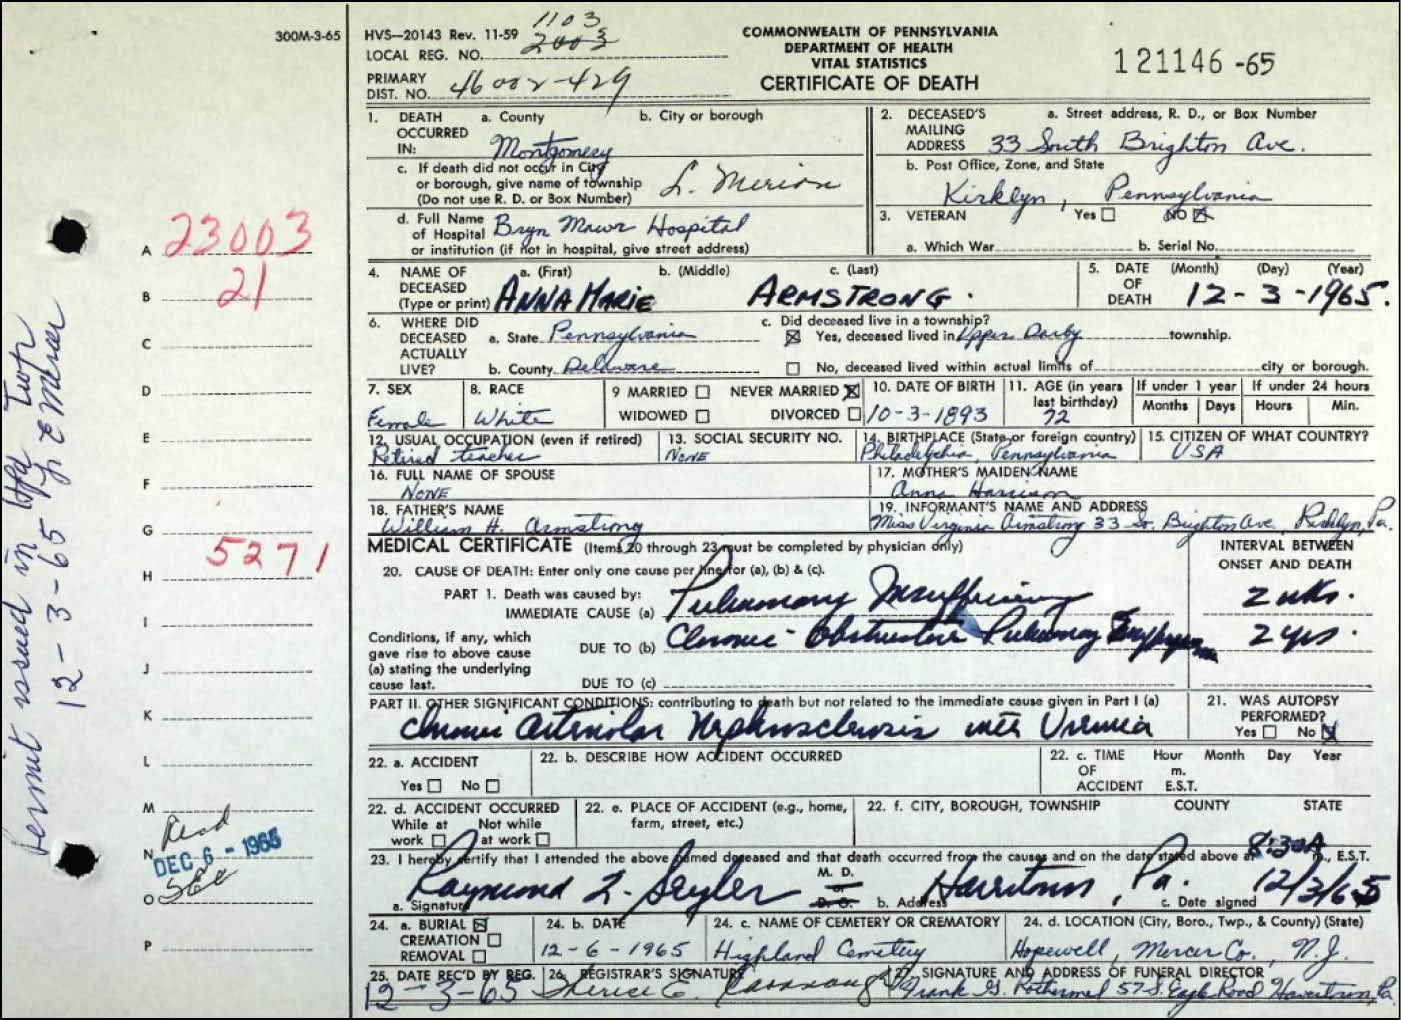 300M-3-65
HVS—20143 Rev. 11-59 1103
LOCAL REG. NO. 2003
PRIMARY DIST. NO. 46002-429
COMMONWEALTH OF PENNSYLVANIA
DEPARTMENT OF HEALTH
VITAL STATISTICS
CERTIFICATE OF DEATH
121146 -65
1. DEATH OCCURRED IN: a. County b. City or borough
Montgomery
c. If death did not occur in City or borough, give name of township (Do not use R. D. or Box Number) L. Merion
d. Full Name of Hospital or institution (if not in hospital, give street address) Bryn Mawr Hospital
2. DECEASED'S MAILING ADDRESS a. Street address, R. D., or Box Number
33 South Brighton Ave.
b. Post Office, Zone, and State
Kirklyn, Pennsylvania
3. VETERAN Yes NO
a. Which War b. Serial No.
4. NAME OF DECEASED (Type or print) a. (First) b. (Middle) c. (Last)
ANNA MARIE ARMSTRONG.
5. DATE OF DEATH (Month) (Day) (Year)
12-3-1965.
6. WHERE DID DECEASED ACTUALLY LIVE? a. State Pennsylvania
b. County Delaware
c. Did deceased live in a township?
Yes, deceased lived in Upper Darby township.
No, deceased lived within actual limits of city or borough.
7. SEX Female
8. RACE White
9 MARRIED NEVER MARRIED
WIDOWED DIVORCED
10. DATE OF BIRTH 10-3-1893
11. AGE (in years last birthday) 72
If under 1 year Months Days
If under 24 hours Hours Min.
12. USUAL OCCUPATION (even if retired) Retired teacher
13. SOCIAL SECURITY NO. NONE
14. BIRTHPLACE (State or foreign country) Philadelphia, Pennsylvania
15. CITIZEN OF WHAT COUNTRY? USA
16. FULL NAME OF SPOUSE NONE
17. MOTHER'S MAIDEN NAME Anna Harrison
18. FATHER'S NAME William H. Armstrong
19. INFORMANT'S NAME AND ADDRESS Miss Virginia Armstrong 33 So. Brighton Ave Kirklyn, Pa.
MEDICAL CERTIFICATE (Items 20 through 23 must be completed by physician only)
INTERVAL BETWEEN ONSET AND DEATH
20. CAUSE OF DEATH: Enter only one cause per line for (a), (b) & (c).
PART 1. Death was caused by:
IMMEDIATE CAUSE (a) Pulmonary Insufficiency 2 wks.
Conditions, if any, which gave rise to above cause (a) stating the underlying cause last.
DUE TO (b) Chronic Obstructive Pulmonary Emphysema 2 yrs.
DUE TO (c)
PART II. OTHER SIGNIFICANT CONDITIONS: contributing to death but not related to the immediate cause given in Part I (a)
Chronic arteriolar Nephrosclerosis with Uremia
21. WAS AUTOPSY PERFORMED?
Yes No
22. a. ACCIDENT
Yes No
22. b. DESCRIBE HOW ACCIDENT OCCURRED
22. c. TIME OF ACCIDENT Hour Month Day Year
m.
E.S.T.
22. d. ACCIDENT OCCURRED
While at work Not while at work
22. e. PLACE OF ACCIDENT (e.g., home, farm, street, etc.)
22. f. CITY, BOROUGH, TOWNSHIP COUNTY STATE
23. I hereby certify that I attended the above named deceased and that death occurred from the causes and on the date stated above at 8:30A m., E.S.T.
Raymond L. Seyler M. D. or D. O. Havertown, Pa. 12/3/65
a. Signature b. Address c. Date signed
24. a. BURIAL
CREMATION
REMOVAL
24. b. DATE 12-6-1965
24. c. NAME OF CEMETERY OR CREMATORY Highland Cemetery
24. d. LOCATION (City, Boro., Twp., & County) (State) Hopewell, Mercer Co., N.J.
25. DATE REC'D BY REG. 12-3-65
26. REGISTRAR'S SIGNATURE E. Cavanaugh
27. SIGNATURE AND ADDRESS OF FUNERAL DIRECTOR Frank G. Rothermel 57 S. Eagle Road Havertown, Pa.
A 23003
B 21
C
D
E
F
G
H 5271
I
J
K
L
M
N DEC 6 - 1965
O
P
Permit issued in Twp
12-3-65 by